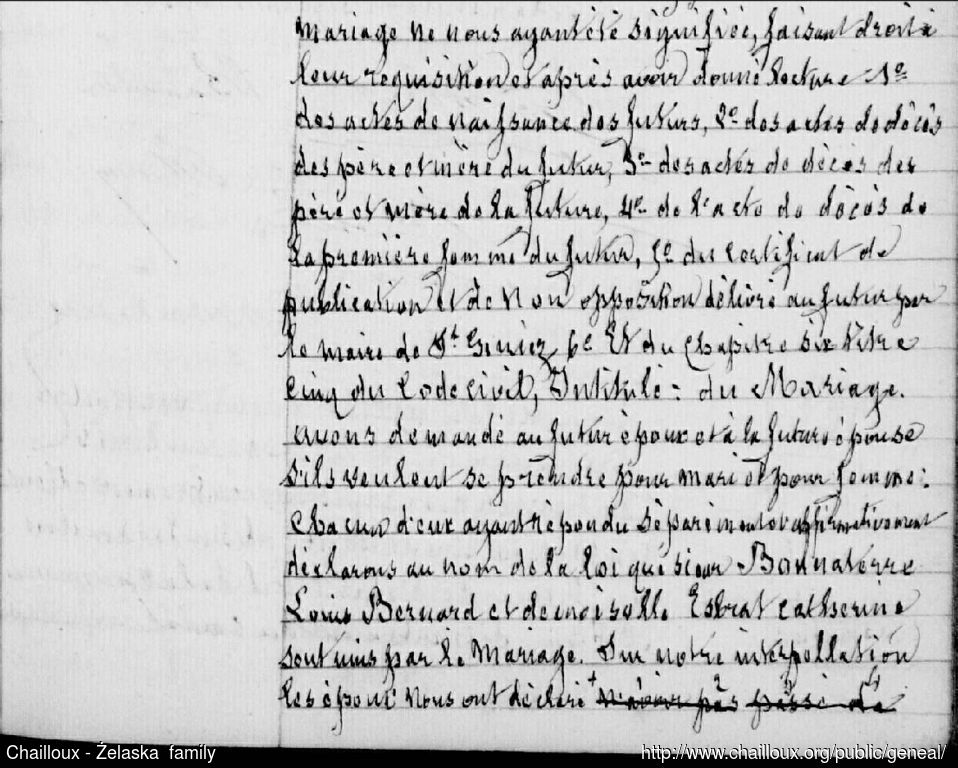 mariage ne nous ayant été signifiée, faisant droit à
leur requisition et après avoir donné lecture 1º
des actes de naissance des futurs, 2º des actes de décès
des père et mère du futur, 3º des actes de décès des
père et mère de la future, 4º de l'acte de décès de
la première femme du futur, 5º du certificat de
publication et de non opposition délivré au futur par
le maire de St Geniez, 6º Et du Chapitre six titre
cinq du Code civil, Intitulé : du Mariage.
avons demandé au futur époux et à la future épouse
s'ils veulent se prendre pour mari et pour femme :
chacun d'eux ayant répondu séparément et affirmativement
déclarons au nom de la loi que sieur Bonnaterre
Louis Bernard et demoiselle Estrat Catherine
sont unis par le Mariage. Sur notre interpellation
les époux nous ont déclaré + n'avoir pas passé de
Chailloux - Żelaska family
http://www.chailloux.org/public/geneal/